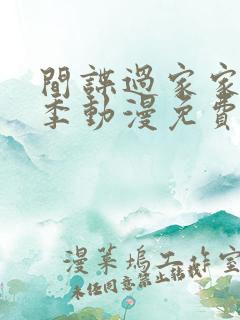 間諜過家家
季動漫免費
漫菜塢工作室
未经同意禁止转载